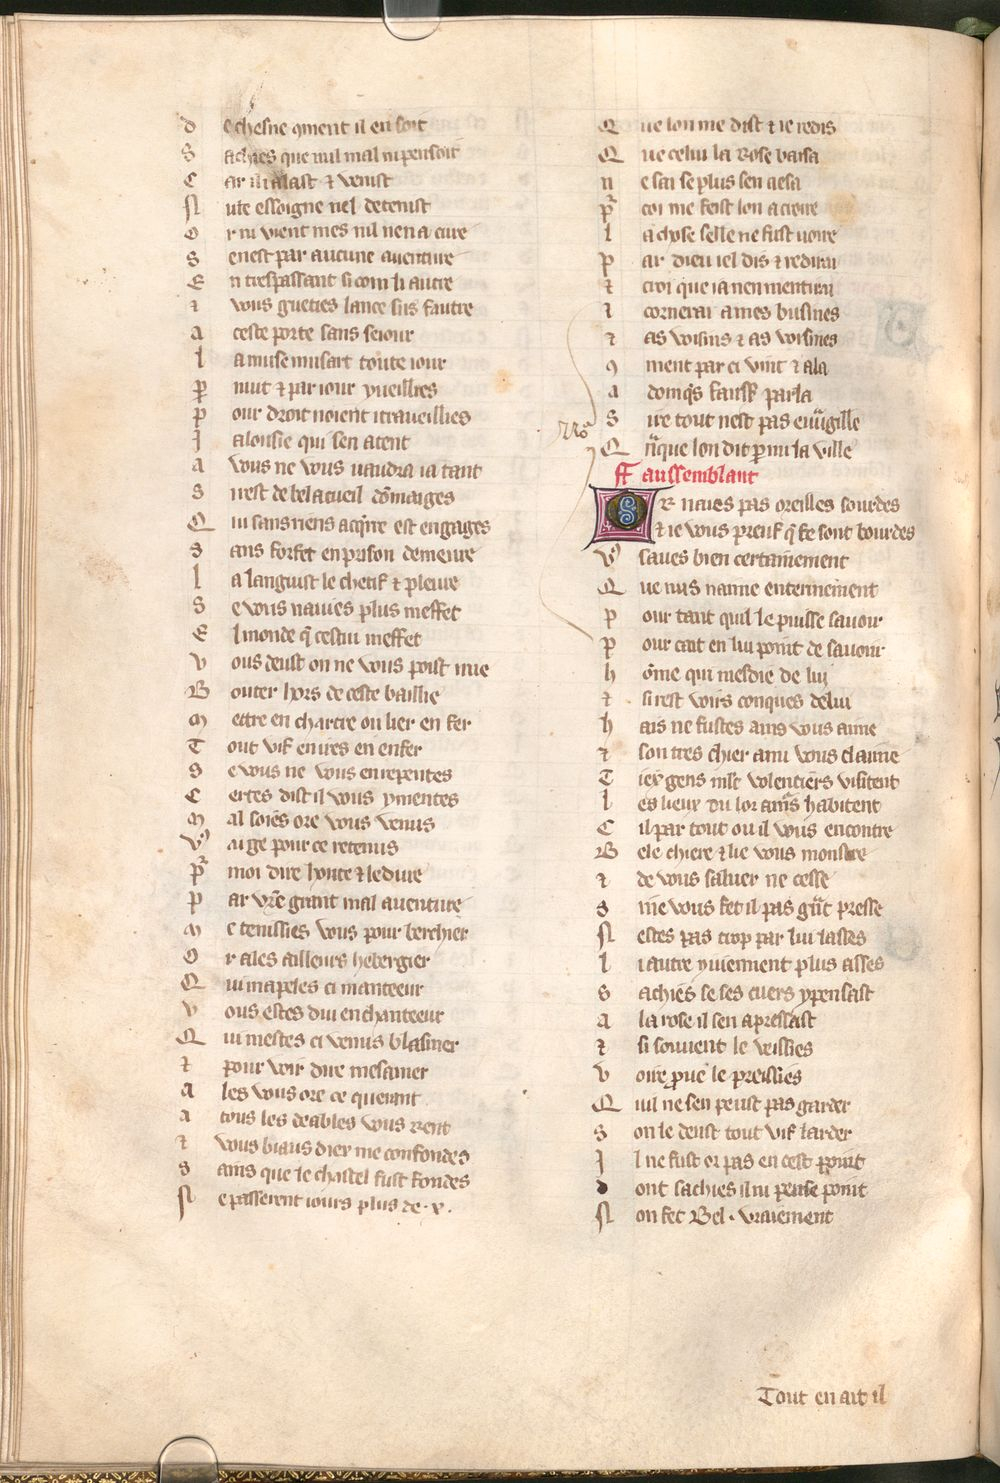 d e chesne qment il en soit
S achies que nul mal ni pensoit
C ar il alast ⁊ venist
N ule essoigne nel detenist
O r ni vient mes nil nen a cure
S enest par aucune aventure
E n trespassant si com li autre
⁊ vous gueties lance sus fautre
a ceste porte sans seiour
l a muse musart toute iour
P nuit ⁊ par iour y veillies
p our droit noient i traveillies
J alousie qui sen atent
a vous ne vous vaudra ia tant
S nest de bel acueil domaiges
Q ui sans riens acqrre est engages
S ans forfet en prison demeure
l a languist le chetif ⁊ pleure
S e vous naviies plus meffet
E l monde q cestui meffet
v ous deust on ne vous poist mie
B outer hors de ceste baillie
M ettre en chartre ou lier en fer
T out vif enires en enfer
S e vous ne vous en repentes
C ertes dist il vous y mentes
M al soies ore vous venus
V⁹ ai ge pour ce retenus
P moi dire honte ⁊ ledure
P ar vre grant mal aventure
M e tenissies vous pour berchier
O r ales ailleurs hebergier
Q ui mapeles ci manteeur
v ous estes dui enchanteeur
Q ui mestes ci venus blasmer
⁊ pour voir dire mesamer
a les vous ore ce querant
a tous les deables vous rent
⁊ vous biaus diex me confondes
S ains que le chastel fust fondes
N e passerent iours plus de .x.
Q ue lon me dist ⁊ ie redis
Q ue celui la Rose baisa
n e sai se plus sen aesa
P coi me feist lon acroire
l a chose selle ne fust voire
p ar dieu iel dis ⁊ redirai
⁊ croi que ia nen mentirai
⁊ cornerai a mes busines
⁊ as voisins ⁊ as voisines
9 ment par ci vint ⁊ ala
a donqs faussē parla
S ire tout nest pas euugille
Q nque lon dit p mi la ville
Faussemblant
Or naies pas oreilles sourdes
⁊ ie vous preuf q ce sont bourdes
V⁹ saves bien certainement
Q ue nus naime enterinement
P our tant quil le puisse savoir
P our cait en lui point de savoir
h ome qui mesdie de lui
⁊ si rest voirs conques delui
h ais ne fustes ains vous aime
⁊ son tres chier ami vous claime
T iex gens mlt volentiers visitent
l es lieux ou lor amis habitent
C il par tout ou il vous encontre
B ele chiere ⁊ lie vous monstre
⁊ de vous saluer ne cesse
S i ne vous fet il pas gnt presse
N estes pas trop par lui lasses
l i autre y viennent plus asses
S achies se ses cuers y pensast
a la rose il sen apressast
⁊ si souvent le veissies
v oire prue le preissies
Q uil ne sen peust pas garder
S on le deust tout vif larder
J l ne fust or pas en cest point
d ont sachies il ni pense point
N on fet Bel. vraiement
Tout en ait il